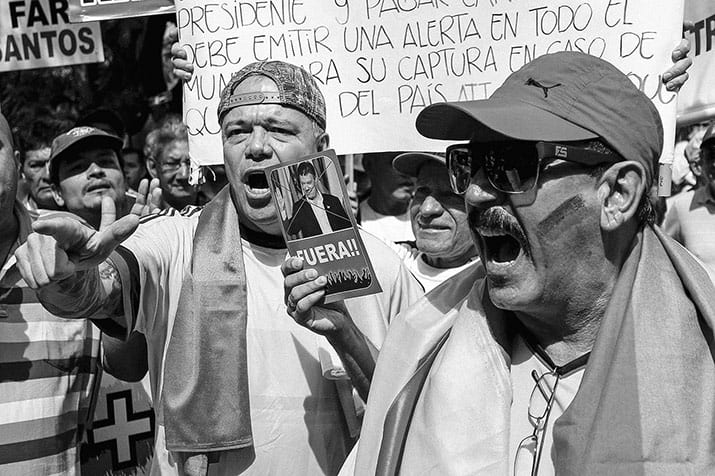 FAR
SANTOS
PRESIDENTE Y PAGAR
DEBE EMITIR UNA ALERTA EN TODO EL
SU CAPTURA EN CASO DE
DEL PAÍS
FUERA!!